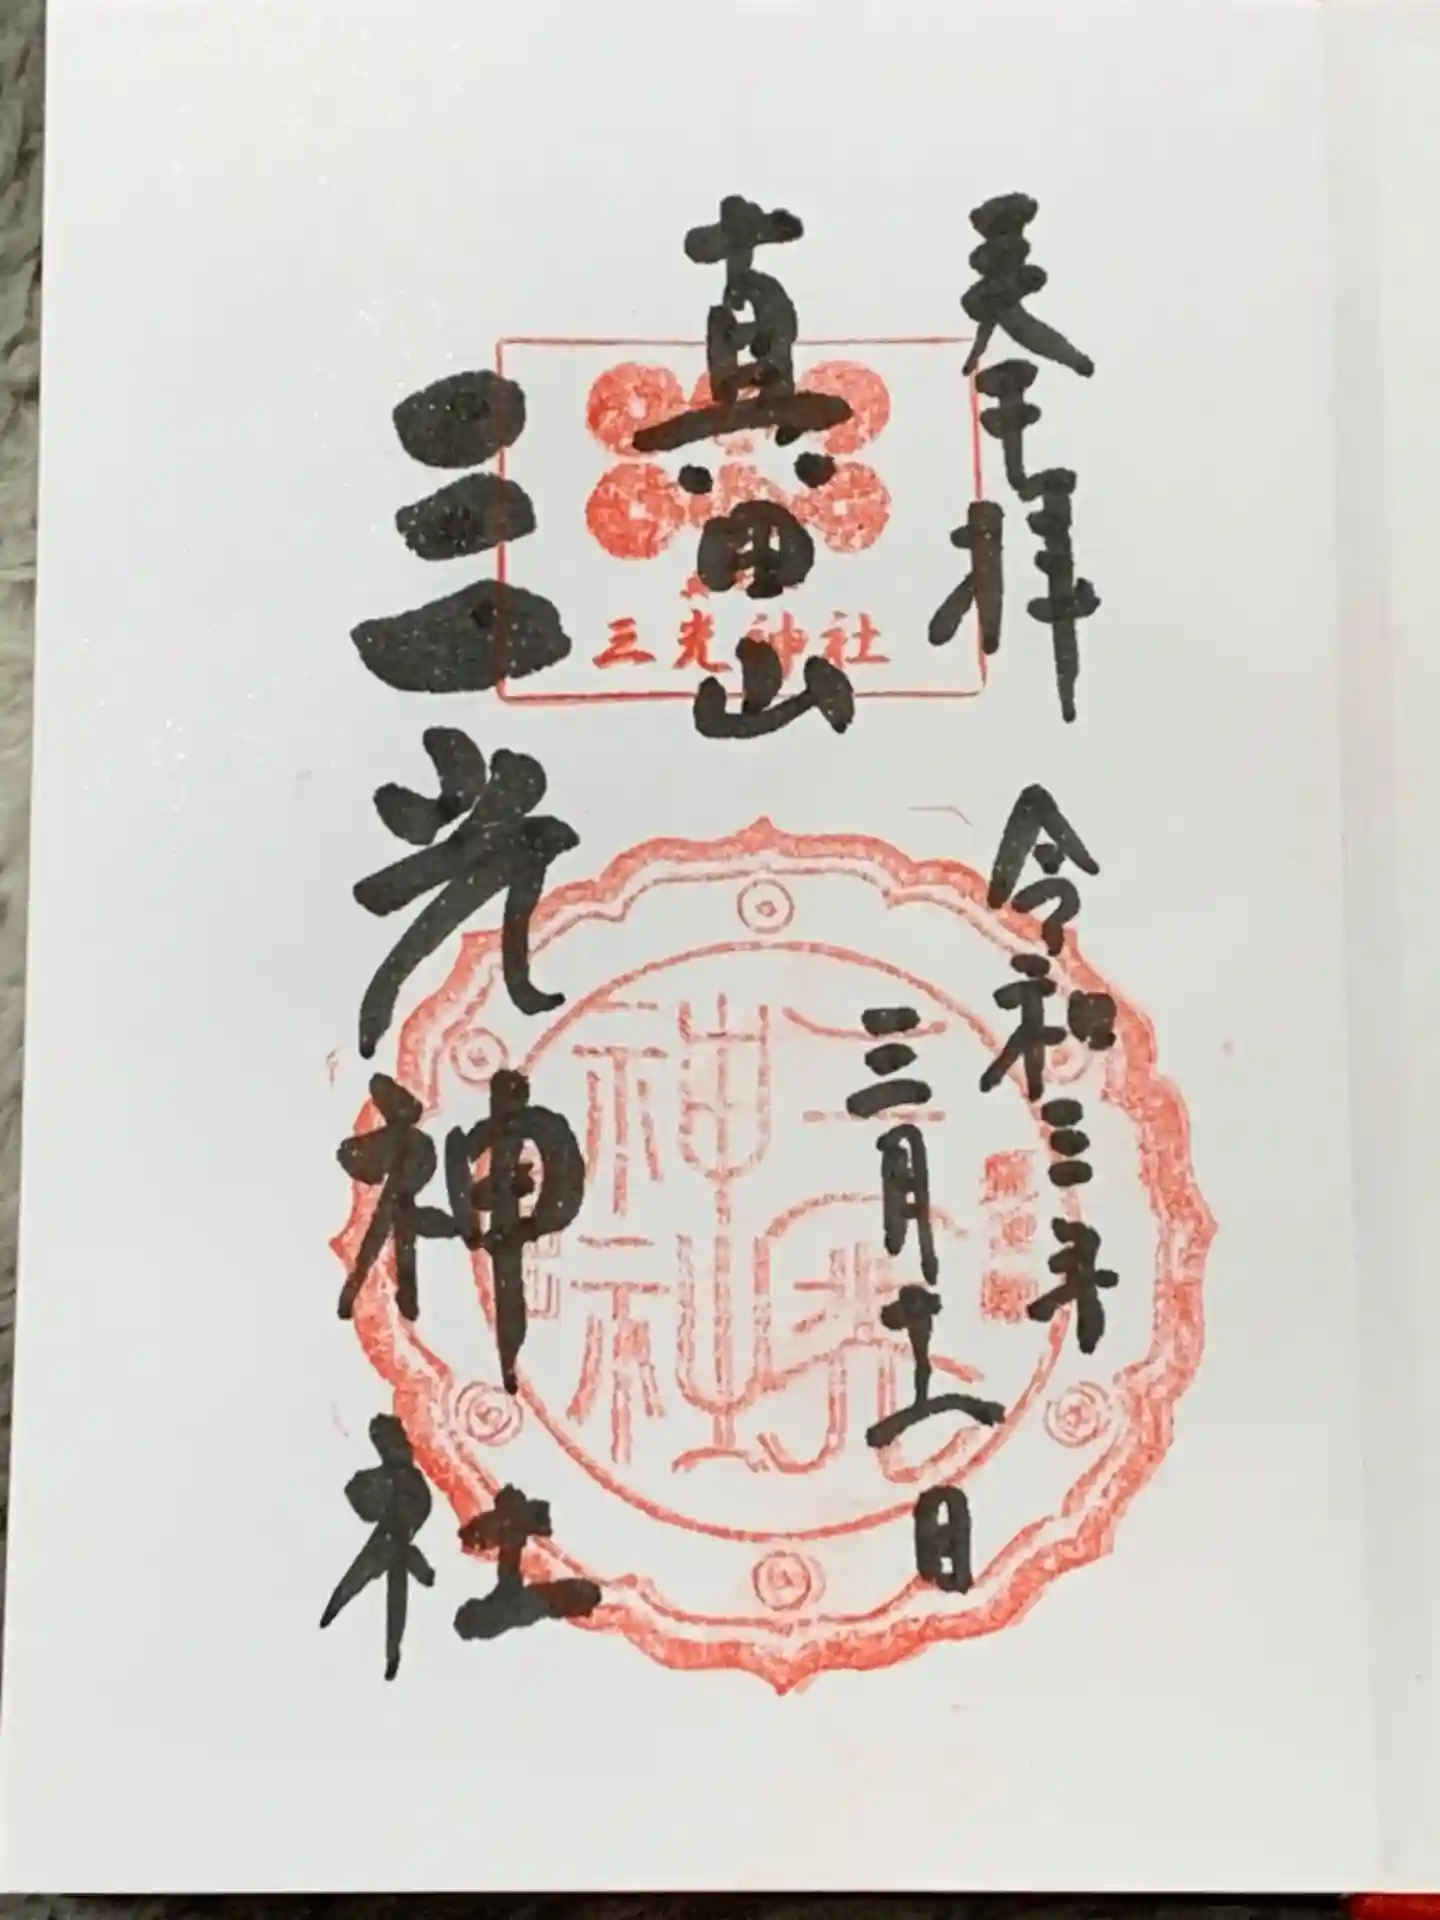 奉拝
令和三年
三月十一日
真田山
三光神社
三光神社
三光神社